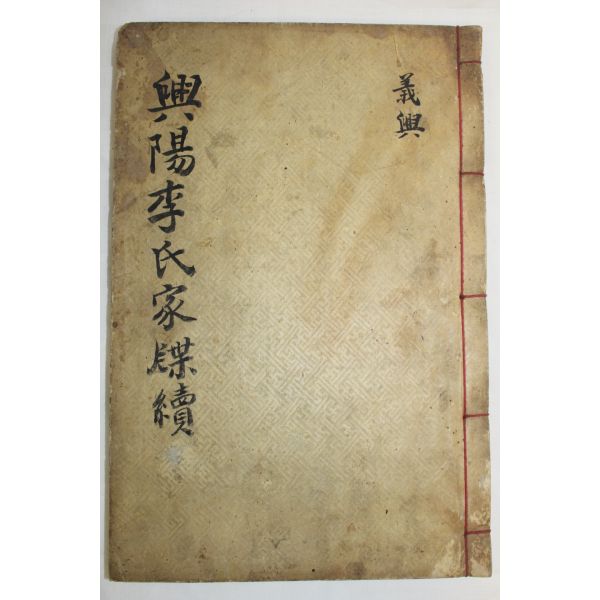 義興
興陽李氏家牒續